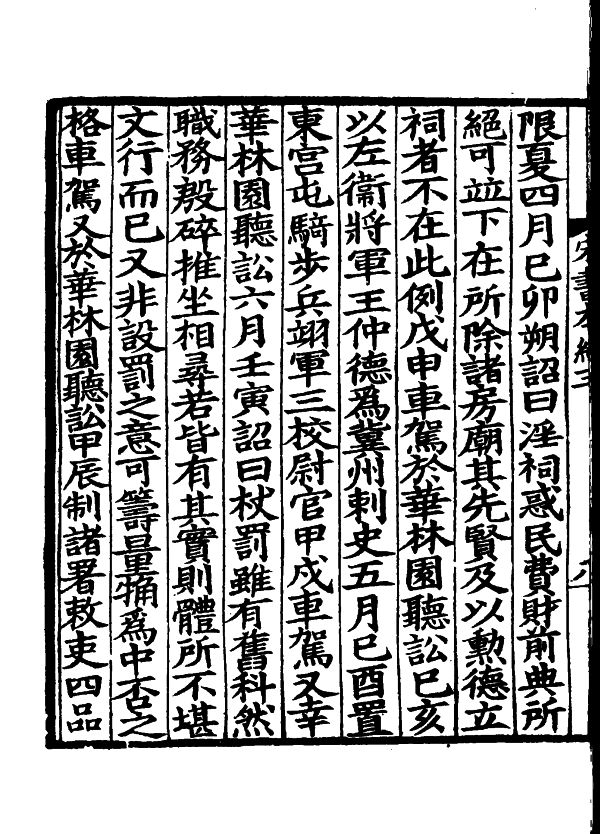 宋書本紀三 八
限夏四月己卯朔詔曰淫祠惑民費財前典所
絕可竝下在所除諸房廟其先賢及以勲德立
祠者不在此例戊申車駕於華林園聽訟己亥
以左衞將軍王仲德爲冀州刺史五月己酉置
東宮屯騎步兵翊軍三校尉官甲戌車駕又幸
華林園聽訟六月壬寅詔曰杖罰雖有舊科然
職務殷碎推坐相尋若皆有其實則體所不堪
文行而已又非設罰之意可籌量觕爲中否之
格車駕又於華林園聽訟甲辰制諸署敕吏四品